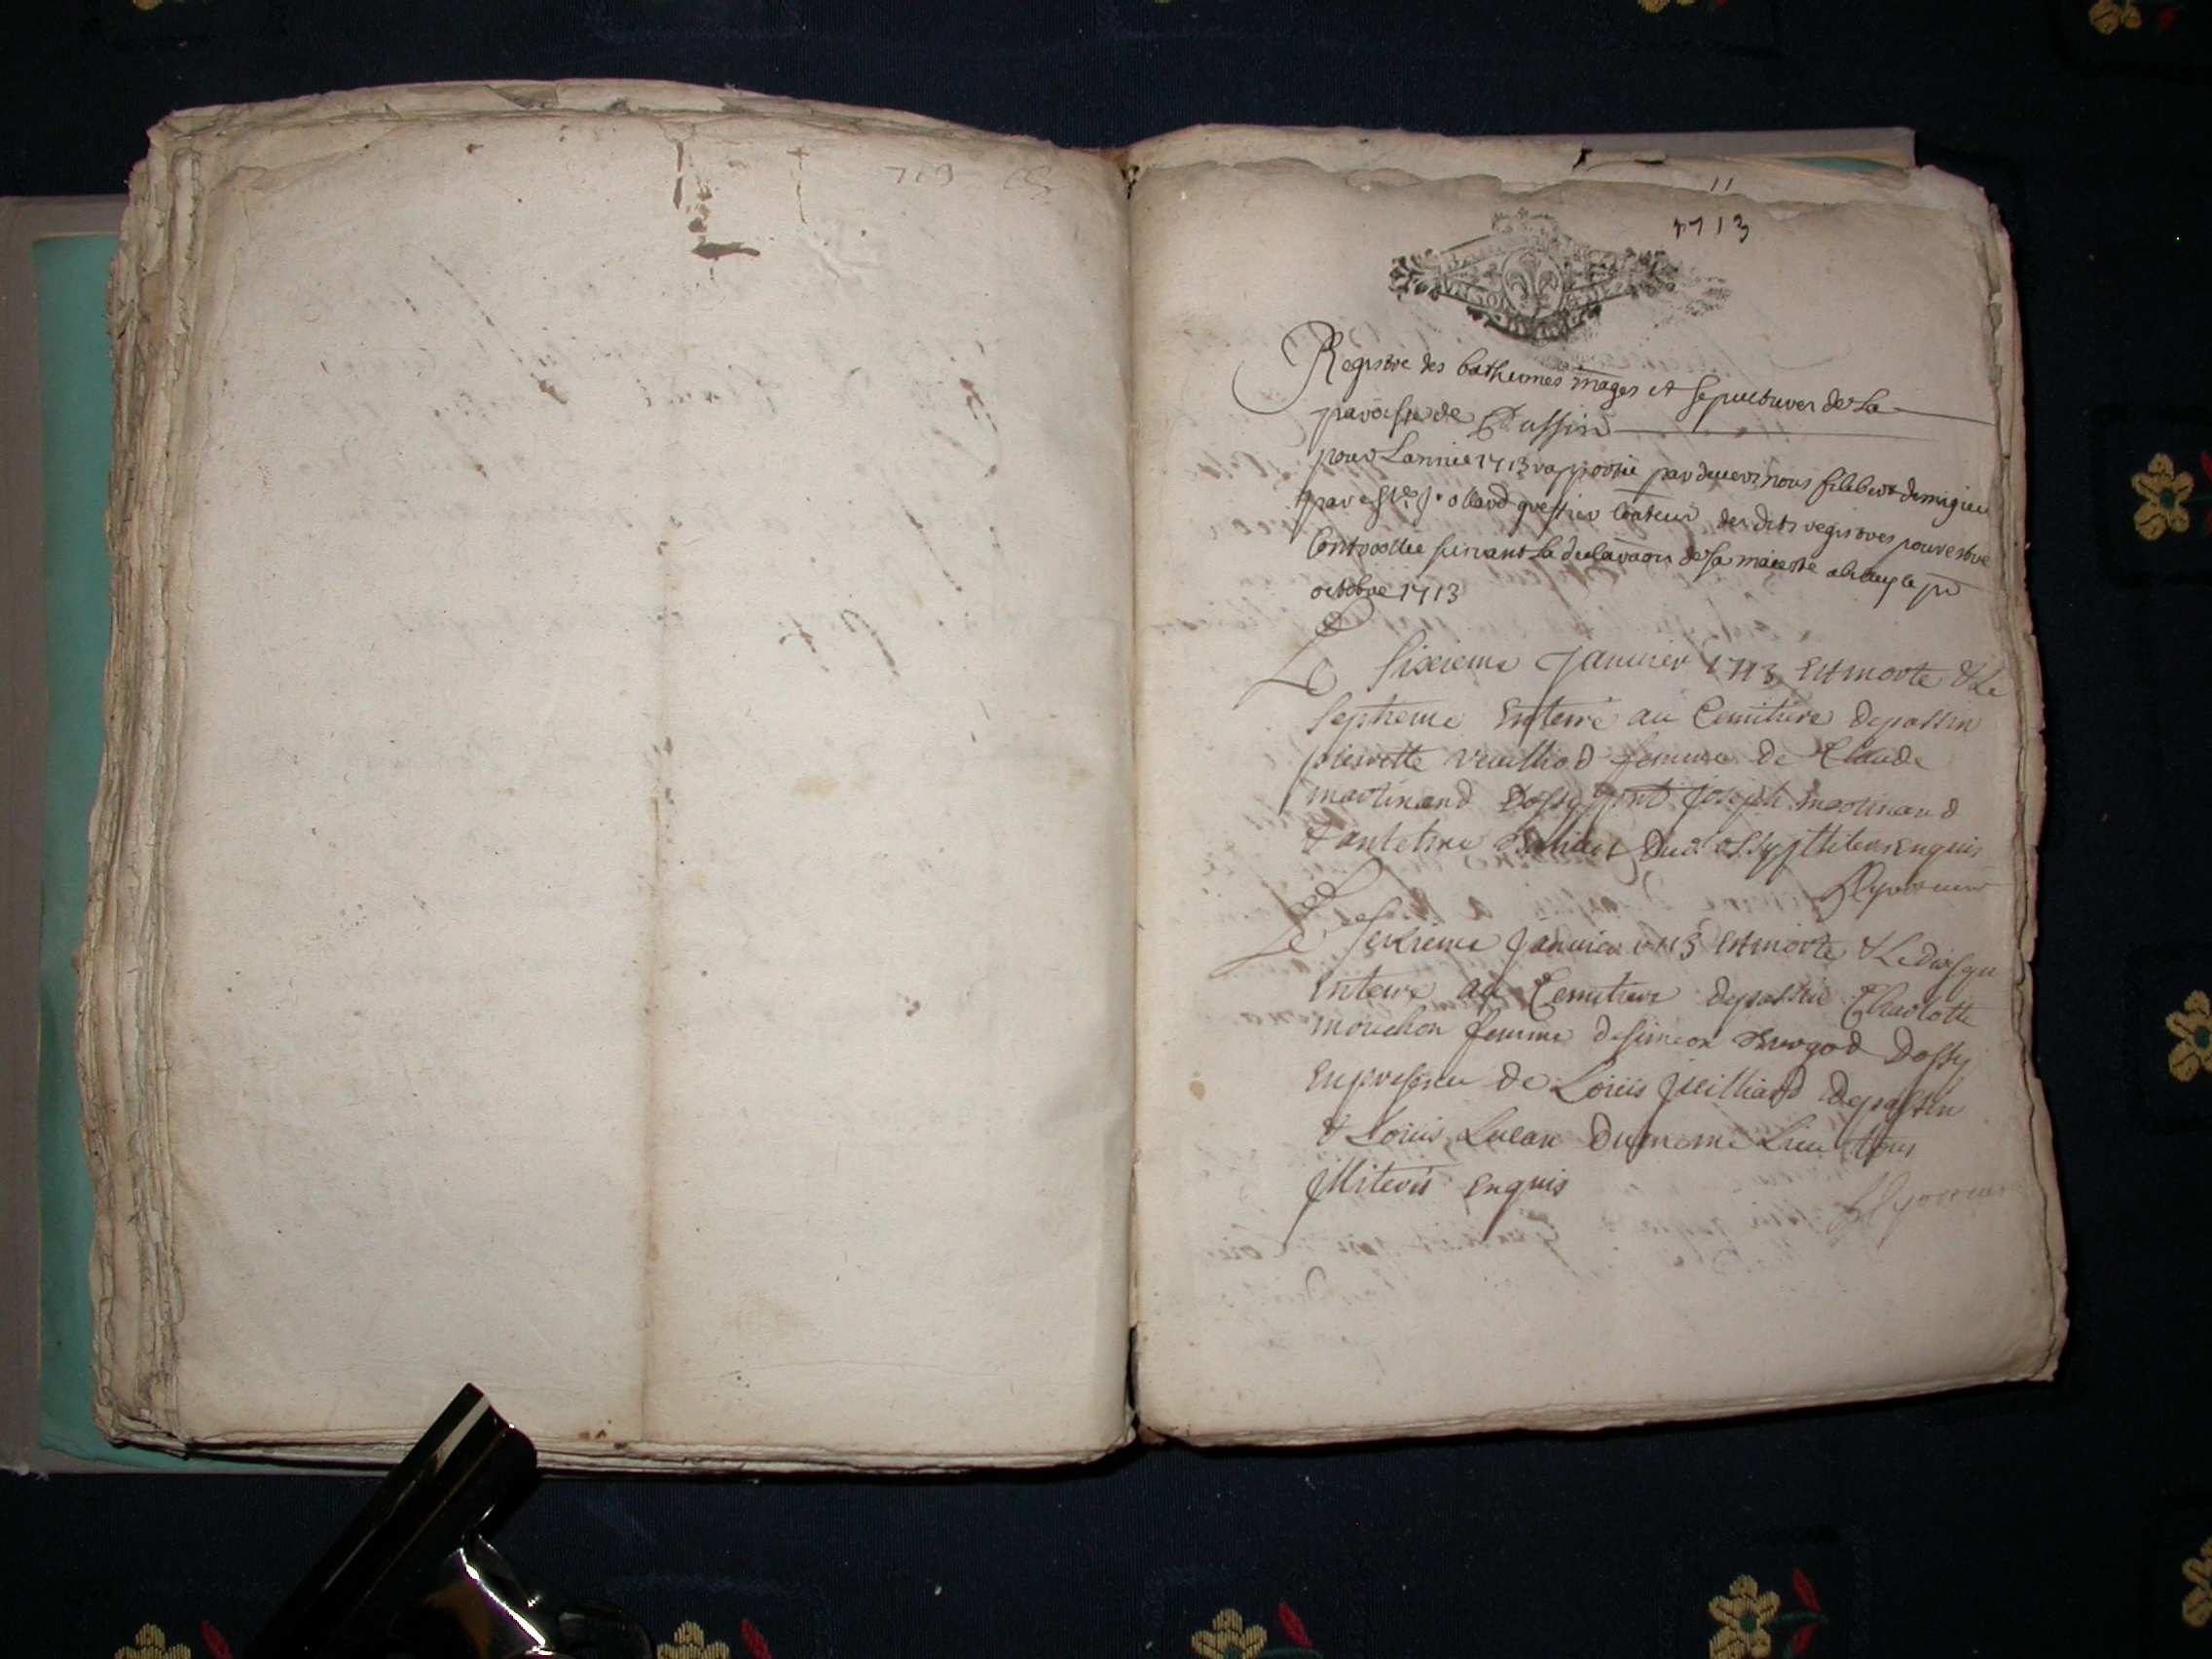 1713
Registre des bathemes mages et sepultures de La
paroisse de Passin
pour Lannee 1713 rapportée par devers nous filibert demigieu
par Jollard greffier des dits registres pour estre
Controollee suivant la declaraon de sa maieste a le pr
octobre 1713
Le sixieme Janvier 1713 Est morte & Le
septieme Enterré au Cemitiere de passin
pierrette femme de Claude
martinand Dossy pnt Joseph martinand
& antelme du d. ossy illiters enquis
Le seizieme Janvier 1713 Est morte & Le dixsept
Enterré au Cemitiere de passin Charlotte
mouchon femme de simeon Burgod Dossy
En presence de Louis Juilliard de passin
& Louis Lucan Du meme Lieu tous
illiteres Enquis